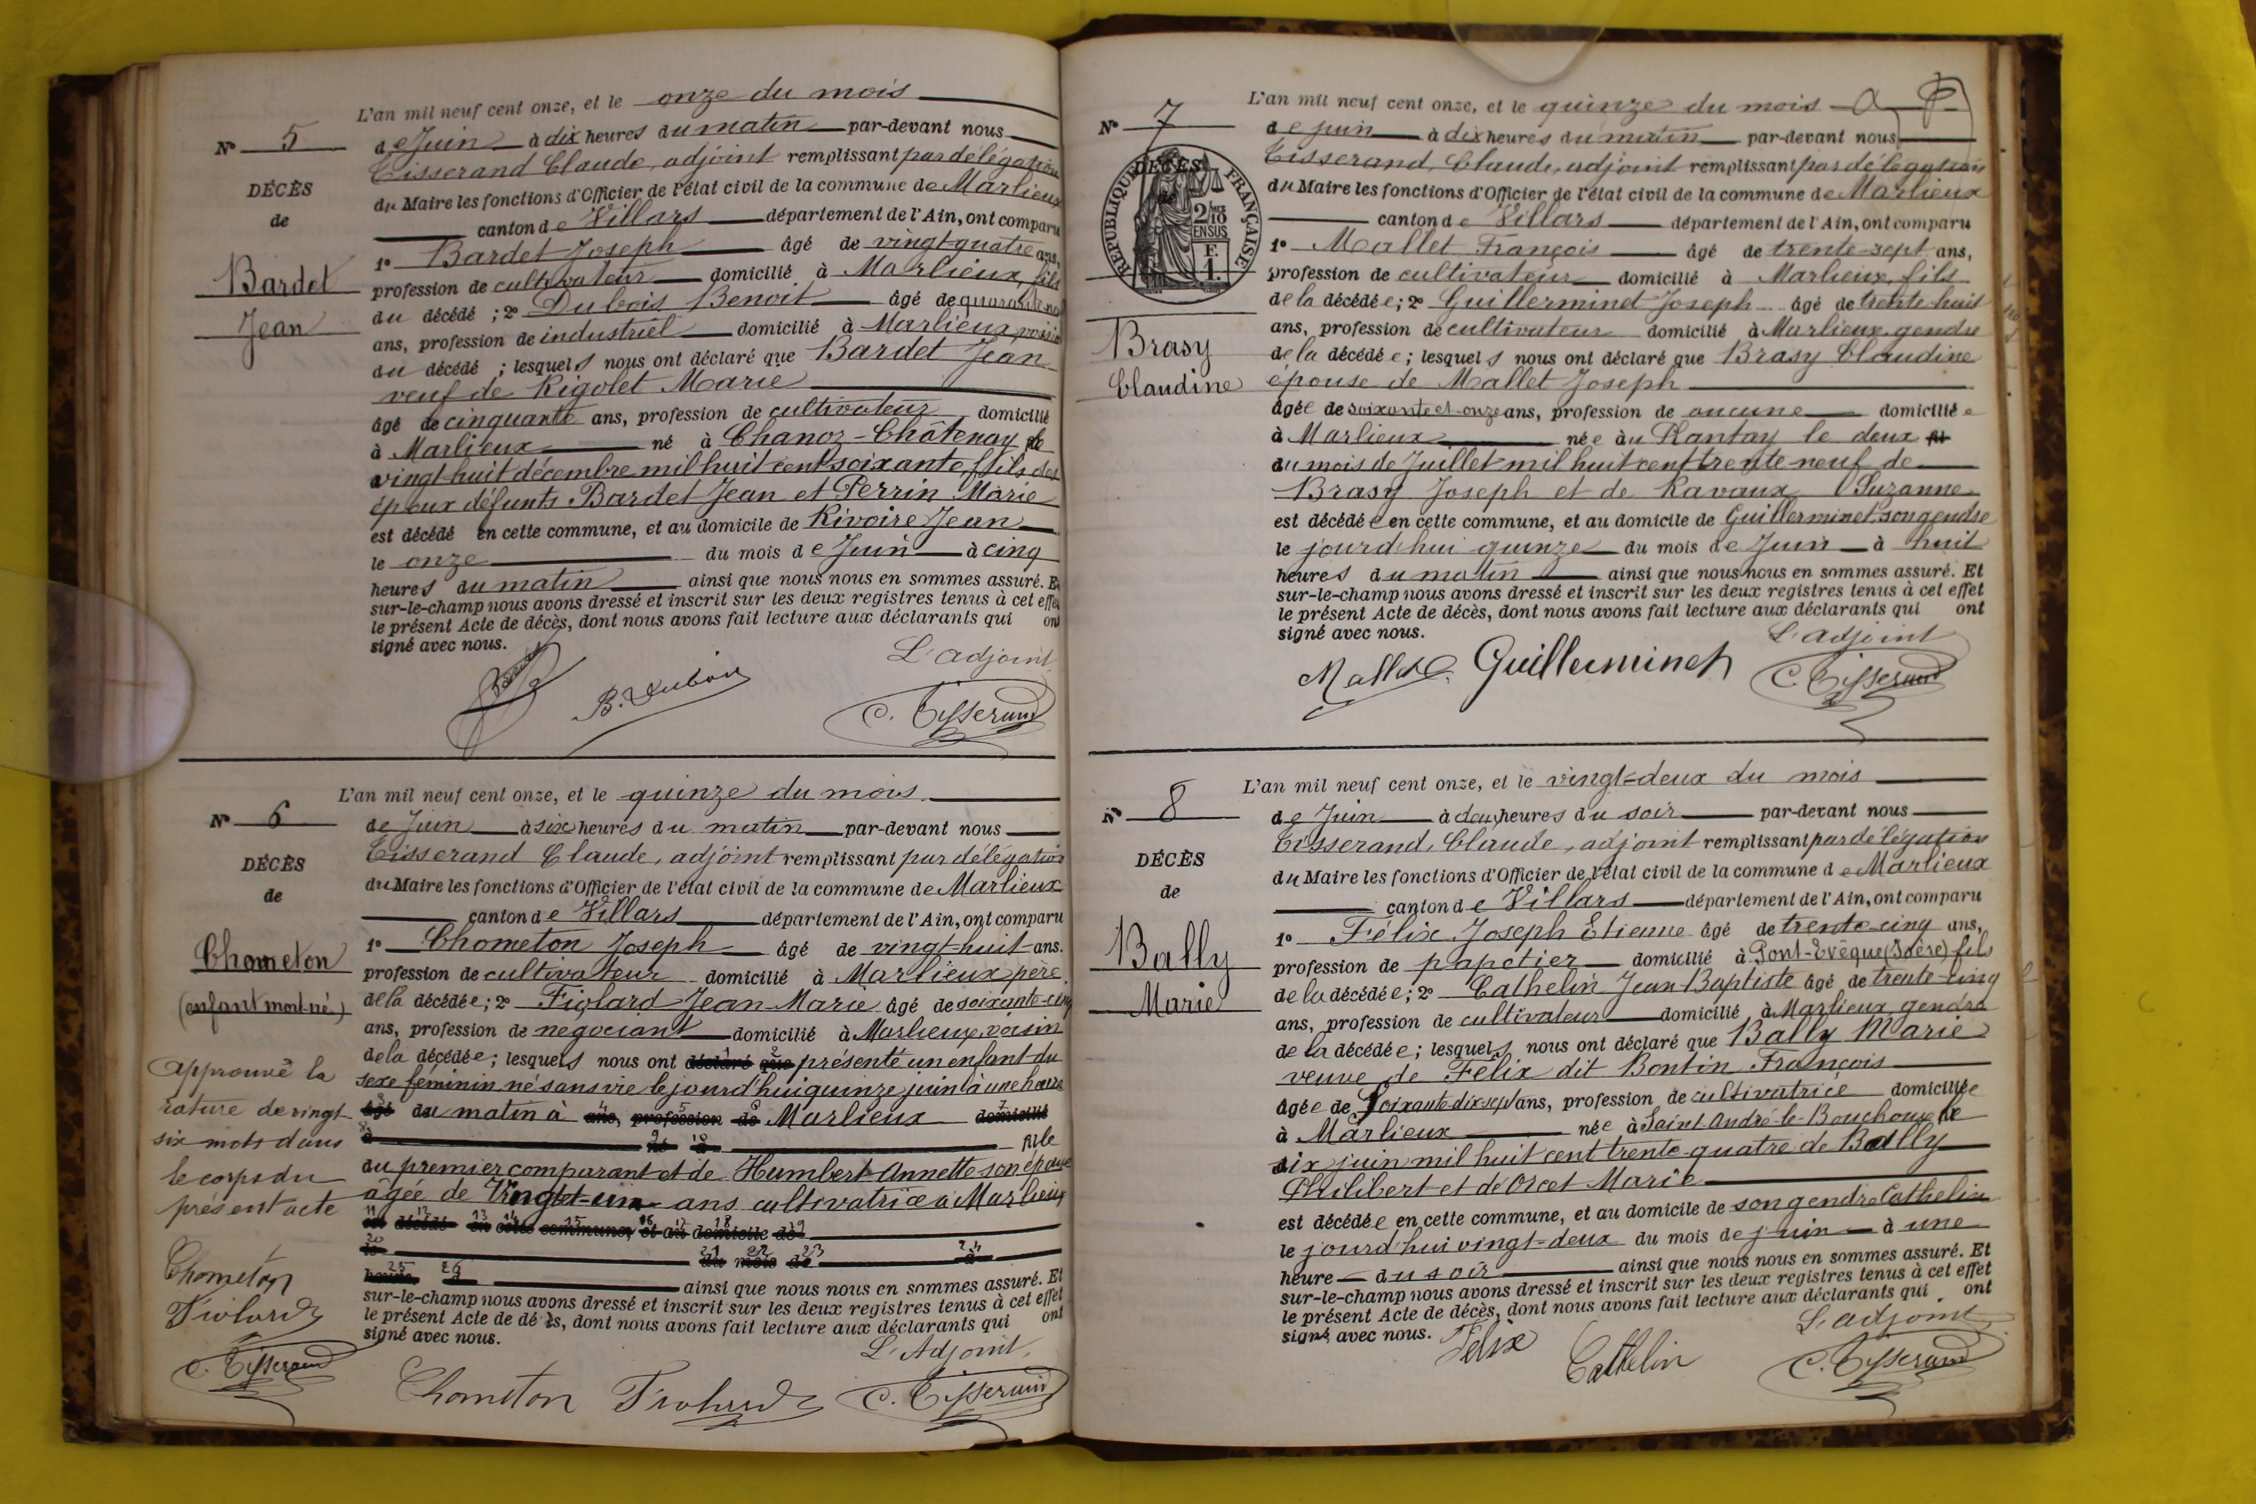 L'an mil neuf cent onze, et le onze du mois
N° 5
de Juin à dix heures du matin par-devant nous
Tisserand Claude, adjoint remplissant par délégation
DÉCÈS
du Maire les fonctions d'Officier de l'état civil de la commune de Marlieux
de
canton de Villars département de l'Ain, ont comparu
1° Bardet Joseph âgé de vingt-quatre ans,
Bardet
profession de cultivateur domicilié à Marlieux, fils
Jean
du décédé ; 2° Dubois Benoit âgé de quarante
ans, profession de industriel domicilié à Marlieux, voisin
du décédé ; lesquels nous ont déclaré que Bardet Jean
veuf de Rigolet Marie
âgé de cinquante ans, profession de cultivateur domicilié
à Marlieux né à Chanoz-Châtenay, le
vingt-huit décembre mil huit cent soixante, fils des
époux défunts Bardet Jean et Perrin Marie
est décédé en cette commune, et au domicile de Rivoire Jean
le onze du mois de Juin à cinq
heures du matin ainsi que nous nous en sommes assuré. Et
sur-le-champ nous avons dressé et inscrit sur les deux registres tenus à cet effet
le présent Acte de décès, dont nous avons fait lecture aux déclarants qui ont
signé avec nous.
L'adjoint
B. Dubois
C. Tisserand
L'an mil neuf cent onze, et le quinze du mois
N° 6
de Juin à six heures du matin par-devant nous
Tisserand Claude, adjoint remplissant par délégation
DÉCÈS
du Maire les fonctions d'Officier de l'état civil de la commune de Marlieux
de
canton de Villars département de l'Ain, ont comparu
1° Chometon Joseph âgé de vingt-huit ans.
Chometon
profession de cultivateur domicilié à Marlieux, père
(enfant mort-né)
de la décédée ; 2° Fiolard Jean-Marie âgé de soixante-cinq
ans, profession de négociant domicilié à Marlieux, voisin
de la décédée ; lesquels nous ont déclaré que présenté un enfant du
sexe féminin né sans vie le jourd'hui quinze juin à une heure
âgé du matin à ans, profession de Marlieux domicilié
à né à fille
du premier comparant et de Humbert Annette son épouse
âgée de Vingt-et-un ans cultivatrice à Marlieux
est décédé en cette commune, et au domicile de
le du mois de à
heure d ainsi que nous nous en sommes assuré. Et
sur-le-champ nous avons dressé et inscrit sur les deux registres tenus à cet effet
le présent Acte de décès, dont nous avons fait lecture aux déclarants qui ont
signé avec nous.
L'Adjoint,
Chometon Fiolard C. Tisserand
Approuvé la
rature de vingt-
six mots dans
le corps du
présent acte
Chometon
Fiolard
C. Tisserand
L'an mil neuf cent onze, et le quinze du mois
N° 7
de juin à dix heures du matin par-devant nous
Tisserand, Claude, adjoint remplissant par délégation
DÉCÈS
de
RÉPUBLIQUE FRANÇAISE
2/10 EN SUS
F. 1.
du Maire les fonctions d'Officier de l'état civil de la commune de Marlieux
canton de Villars département de l'Ain, ont comparu
1° Mallet François âgé de trente-sept ans,
profession de cultivateur domicilié à Marlieux, fils
de la décédée ; 2° Guillerminet Joseph âgé de trente-huit
ans, profession de cultivateur domicilié à Marlieux, gendre
Brasy
de la décédée ; lesquels nous ont déclaré que Brasy Claudine
Claudine
épouse de Mallet Joseph
âgée de soixante et onze ans, profession de aucune domiciliée
à Marlieux née au Plantay le deux
du mois de Juillet mil huit cent trente-neuf de
Brasy Joseph et de Ravaux Suzanne
est décédée en cette commune, et au domicile de Guillerminet son gendre
le jourd'hui quinze du mois de Juin à huit
heures du matin ainsi que nous nous en sommes assuré. Et
sur-le-champ nous avons dressé et inscrit sur les deux registres tenus à cet effet
le présent Acte de décès, dont nous avons fait lecture aux déclarants qui ont
signé avec nous.
L'adjoint
Mallet Guillerminet C. Tisserand
L'an mil neuf cent onze, et le vingt-deux du mois
N° 8
de Juin à deux heures du soir par-devant nous
Tisserand, Claude, adjoint remplissant par délégation
DÉCÈS
du Maire les fonctions d'Officier de l'état civil de la commune de Marlieux
de
canton de Villars département de l'Ain, ont comparu
1° Félix Joseph Etienne âgé de trente-cinq ans,
Bally
profession de papetier domicilié à Pont-Evêque (Isère) fils
Marie
de la décédée ; 2° Cathelin Jean Baptiste âgé de trente-cinq
ans, profession de cultivateur domicilié à Marlieux, gendre
de la décédée ; lesquels nous ont déclaré que Bally Marie
veuve de Félix dit Bontin François
âgée de Soixante dix-sept ans, profession de cultivatrice domiciliée
à Marlieux née à Saint André-le-Bouchoux le
dix juin mil huit cent trente-quatre de Bally
Philibert et de Orcet Marie
est décédée en cette commune, et au domicile de son gendre Cathelin
le jourd'hui vingt-deux du mois de juin à une
heure du soir ainsi que nous nous en sommes assuré. Et
sur-le-champ nous avons dressé et inscrit sur les deux registres tenus à cet effet
le présent Acte de décès, dont nous avons fait lecture aux déclarants qui ont
signé avec nous.
L'adjoint,
Félix Cathelin C. Tisserand